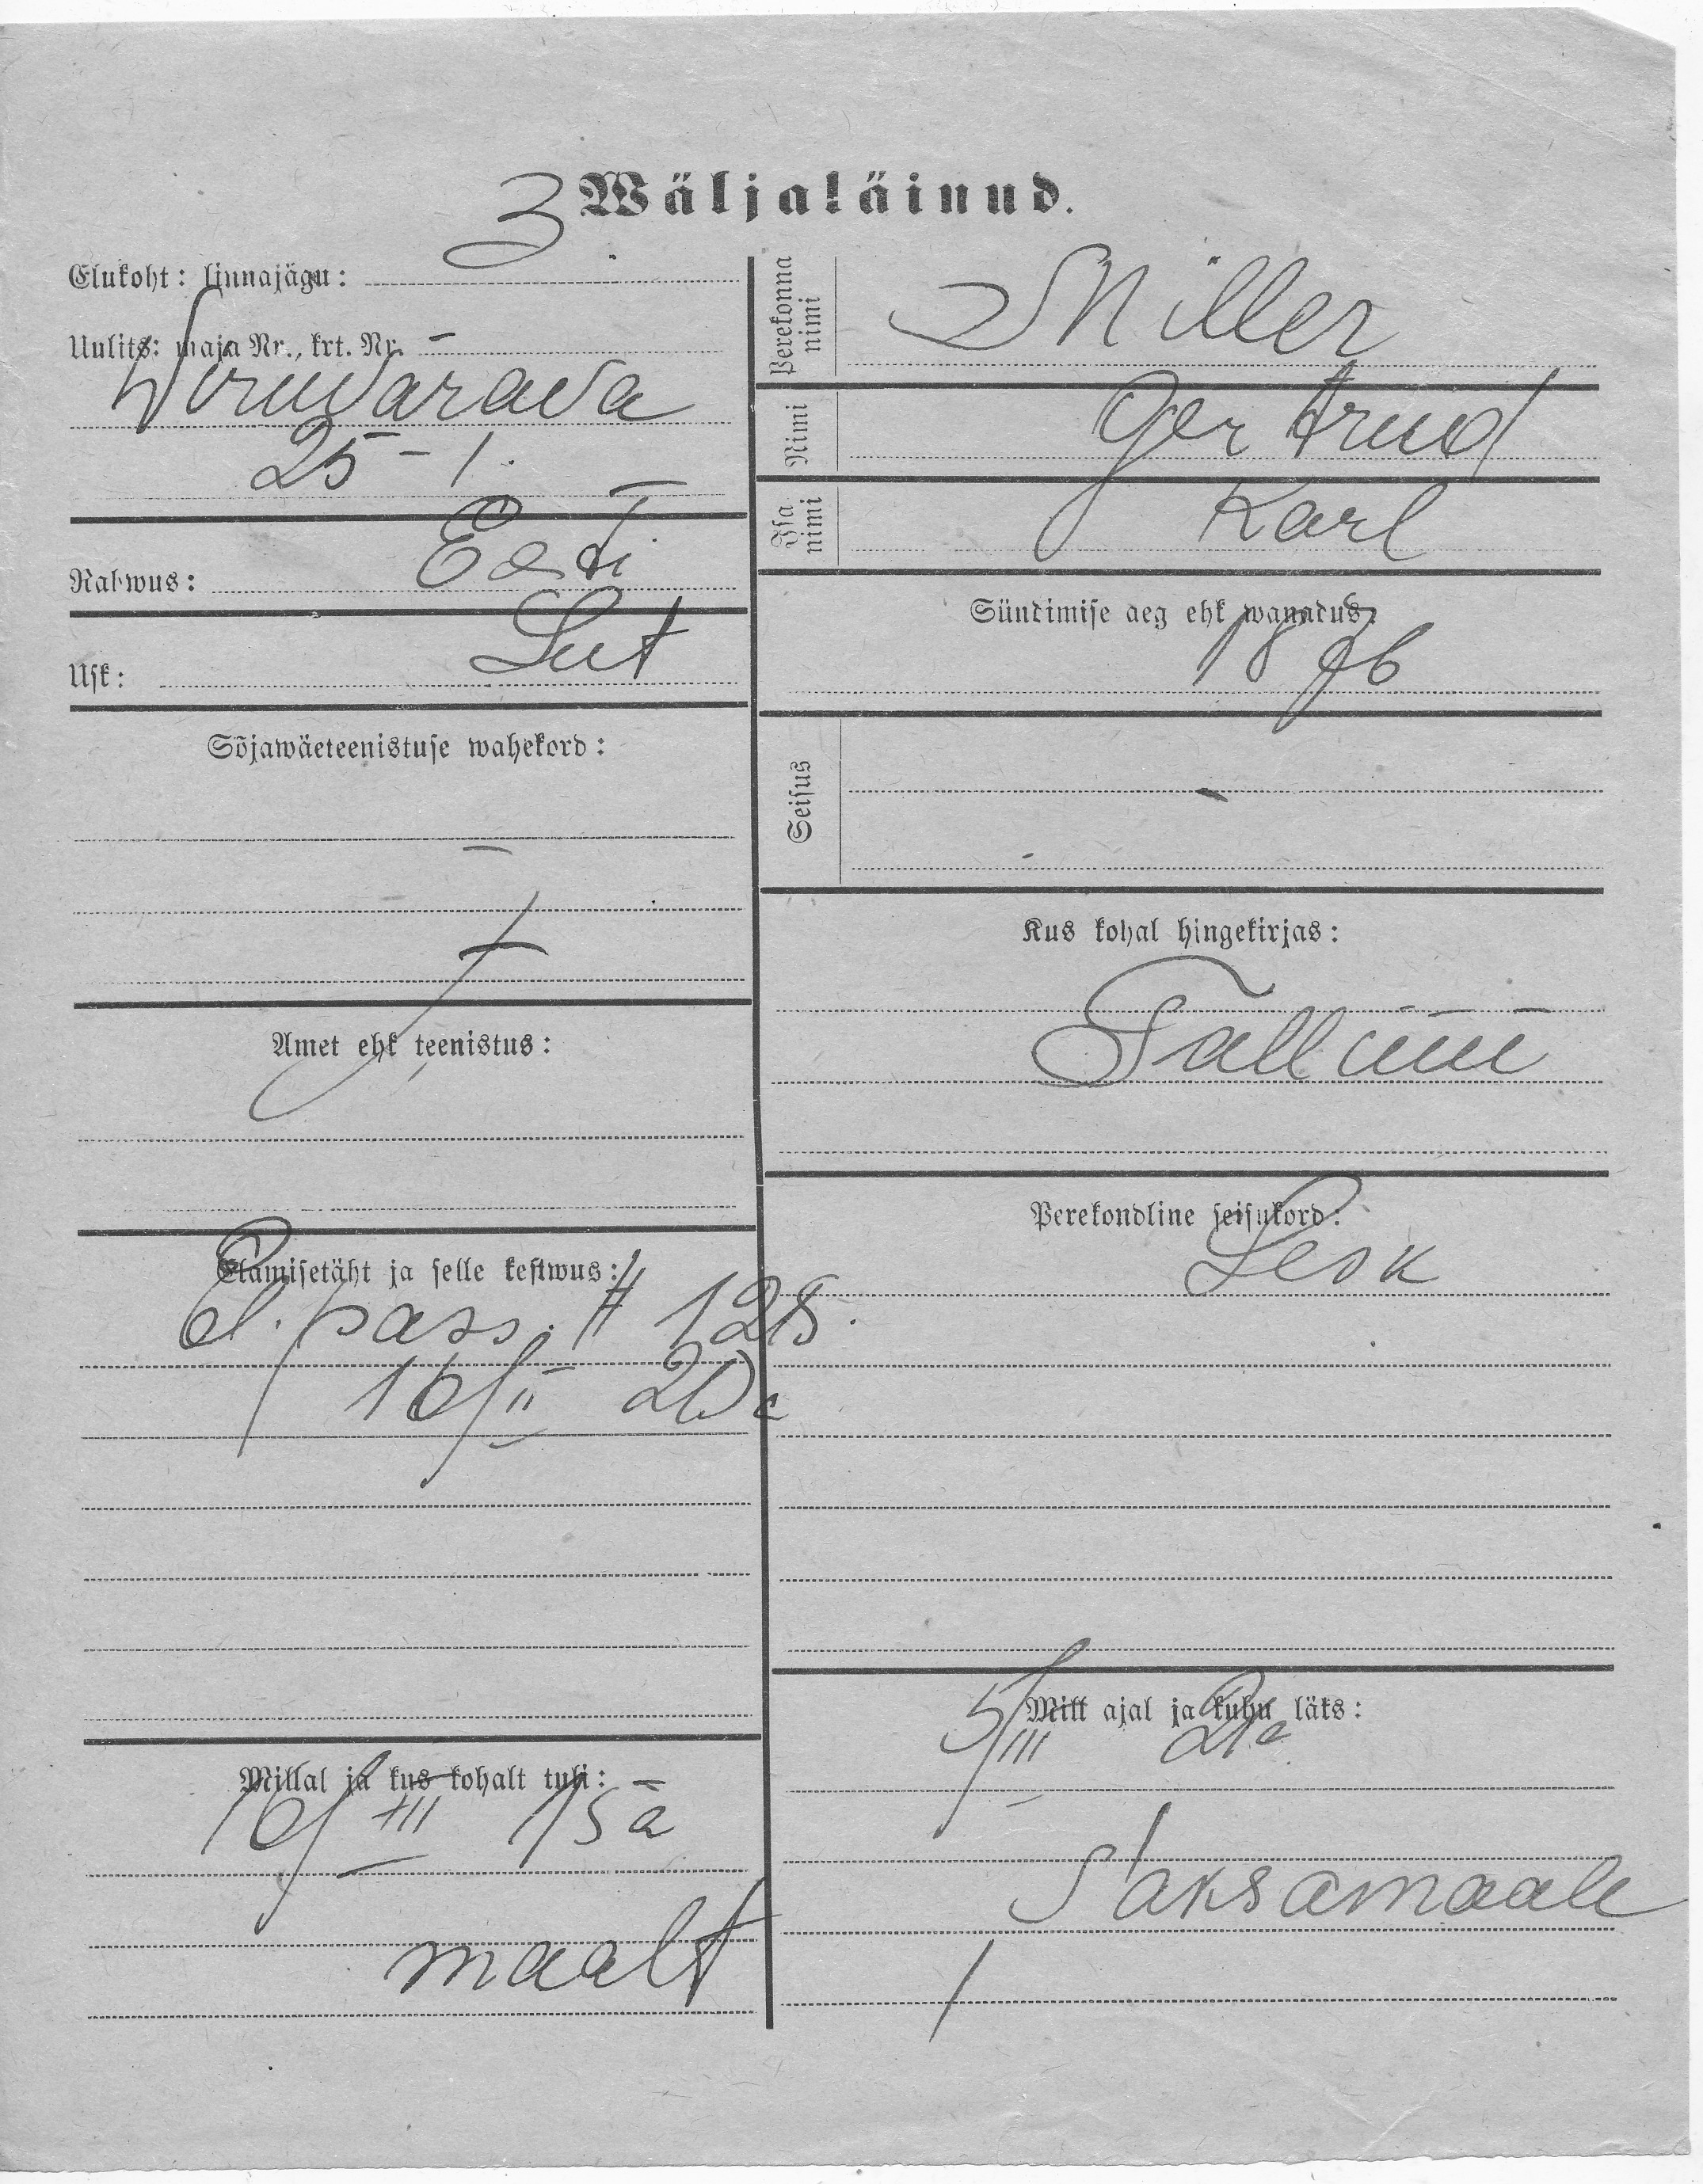 Wäljaläinud.
Elukoht: linnajägu: 3
Uulits: maja Nr., krt. Nr. –
25 – 1.
Rahwus: Eesti
Usk: Lut
Sõjawäeteenistuse wahekord:
–
Amet ehk teenistus:
Elamisetäht ja selle kestwus:
pass. # 128.
16/II 20 a
Millal ja kus kohalt tuli:
15 a
maalt
Perekonna nimi Miller
Nimi Gertrud
Isa nimi Karl
Sündimise aeg ehk wanadus:
Seisus –
Kus kohal hingekirjas:
Tallinn
Perekondline seisukord:
Lesk
Mill ajal ja kuhu läks:
5/III 21 a
Saksamaale